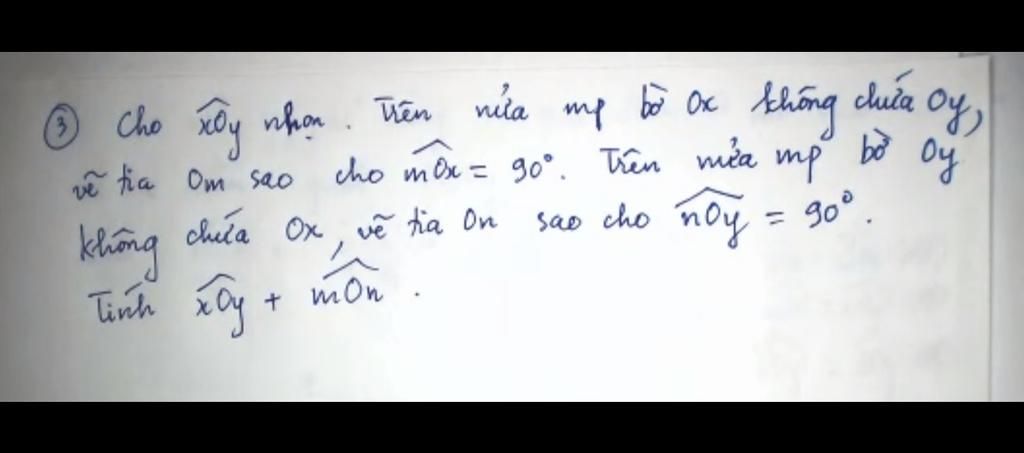 ③ Cho xOy nhọn. Trên nửa mp bờ Ox không chứa Oy,
vẽ tia Om sao cho mOx = 90°. Trên nửa mp bờ Oy
không chứa Ox, vẽ tia On sao cho nOy = 90°.
Tính xOy + mOn.